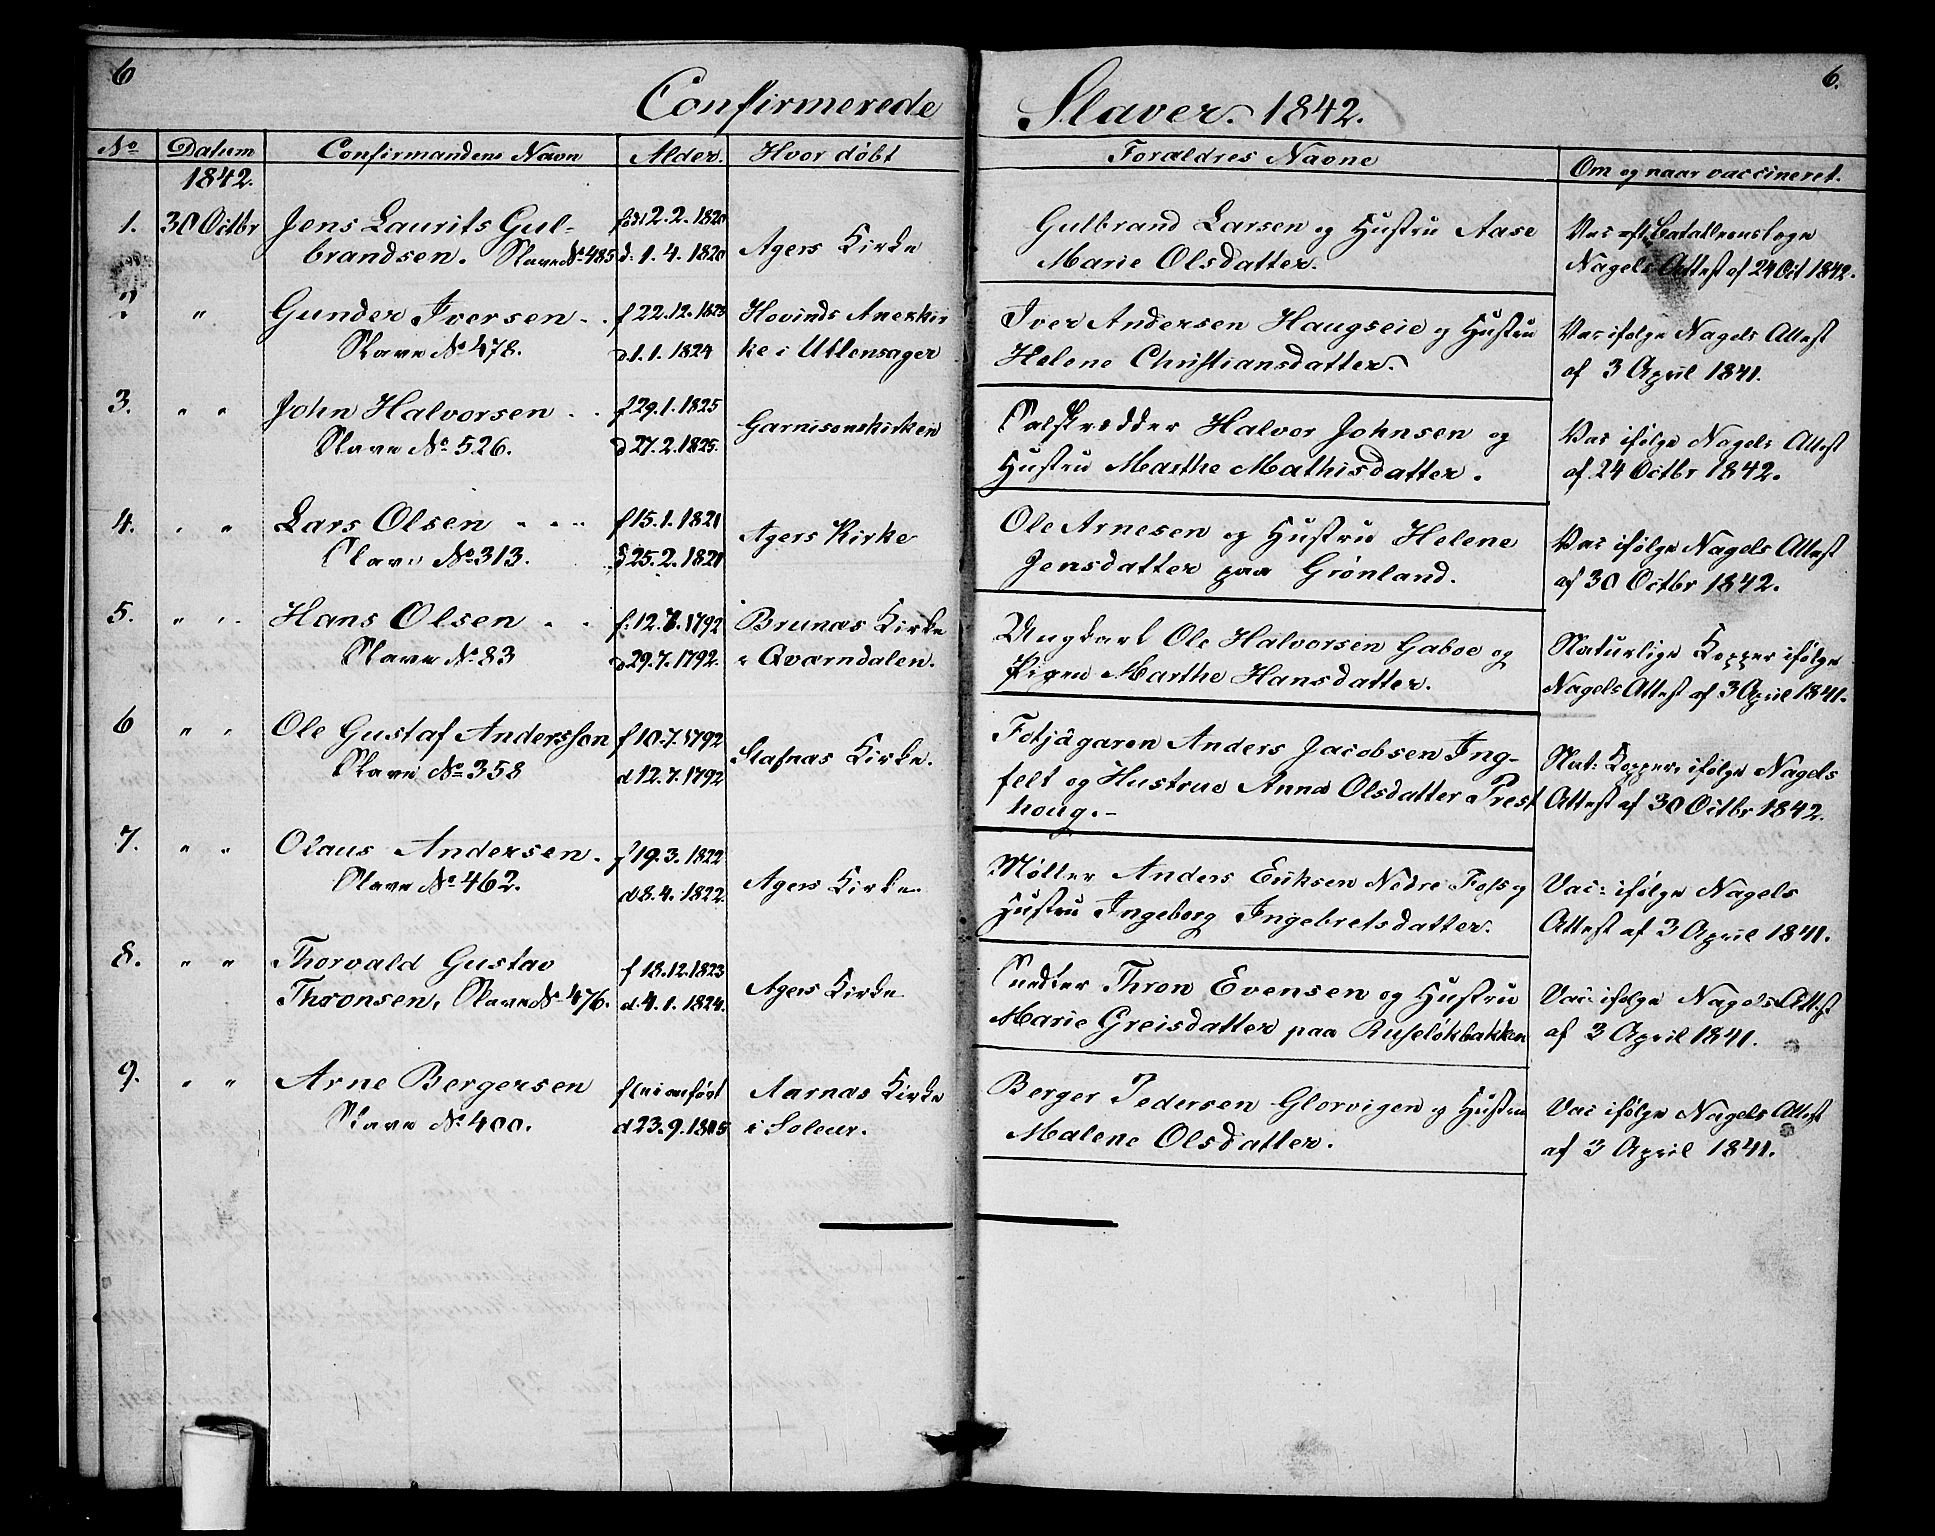 6
6.
Confirmerede Slaver. 1842.
No Datum Confirmandens Navn Alder. Hvor døbt Forældres Navne Om og naar vaccineret.
1842.
1. 30 Octbr Jens Laurits Gul- fød 2.2.1820 Agers Kirke Gulbrand Larsen og Hustru Aase Vac eft Bataillonslæge
brandsen. Slave No 485 d: 1.4.1820 Marie Olsdatter. Nagels Attest af 24 Oct 1842.
2. " Gunder Iversen f 22.12.1823 Hovinds Anexkir Iver Andersen Haugseie og Hustru Vac ifølge Nagels Attest
Slave No 478. d 1.1.1824 ke i Ullensager Helene Christiansdatter. af 3 April 1841.
3. " " John Halvorsen f 29.1.1825 Garnisonskirken Halvor Johnsen og Vac ifølge Nagels Attest
Slave No 526. d 27.2.1825. Hustru Marthe Mathisdatter. af 24 Octbr 1842.
4. " " Lars Olsen f 15.1.1821 Agers Kirke Ole Arnesen og Hustru Helene Vac ifølge Nagels Attest
Slave No 313. d 25.2.1821 Jensdatter paa Grønland. af 30 Octbr 1842.
5. " " Hans Olsen f: 12.7.1792 Brunæs Kirke Ungkarl Ole Halvorsen Gaboe og Naturlige Kopper ifølge
Slave No 83 d 29.7.1792. i Qværndalen. Pigen Marthe Hansdatter. Nagels Attest af 3 April 1841.
6 " " Ole Gustaf Andersson f 10.7.1792 Stafnæs Kirke. Fotjägaren Anders Jacobsen Ing- Nat: Kopper, ifølge Nagels
Slave No 358 d 12.7.1792 felt og Hustrue Anna Olsdatter Prest Attest af 30 Octbr 1842.
houg.-
7. " " Olaus Andersen. f 19.3.1822 Agers Kirke. Møller Anders Eriksen Nedre Foss og Vac: ifølge Nagels
Slave No 462. d 8.4.1822. Hustru Ingeborg Ingebretsdatter. Attest af 3 April 1841.
8. " " Thorvald Gustav f 18.12.1823 Agers Kirke Thron Evensen og Hustru Vac: ifølge Nagels Attest
Thronsen, Slave No 476. d 4.1.1824. Marie Greisdatter paa Ruseløkbakken af 3 April 1841.
9. " " Arne Bergersen f ei anført Aarnæs Kirke Berger Pedersen Glorvigen og Hustru Vac ifølge Nagels Attest
Slave No 400. d 23.9.1805 i Soleur. Malene Olsdatter. af 3 April 1841.